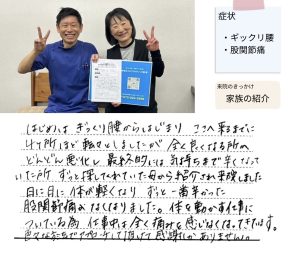 症状
・ギックリ腰
・股関節痛
来院のきっかけ
家族の紹介
はじめは ぎっくり腰からはじまり ここへ来るまでに
4ヶ所ほど 転々としましたが 全く良くなる所か
どんどん悪化し 最終的には 気持ちまで辛くなって
いた所 ずっと探してくれていた母から紹介され来院しました
日に日に 体が軽くなり ずっと一番辛かった
股関節痛がなくなりました。体を動かす仕事に
ついている為 仕事中は全く痛みを感じなくなったです。
感謝しかありません。